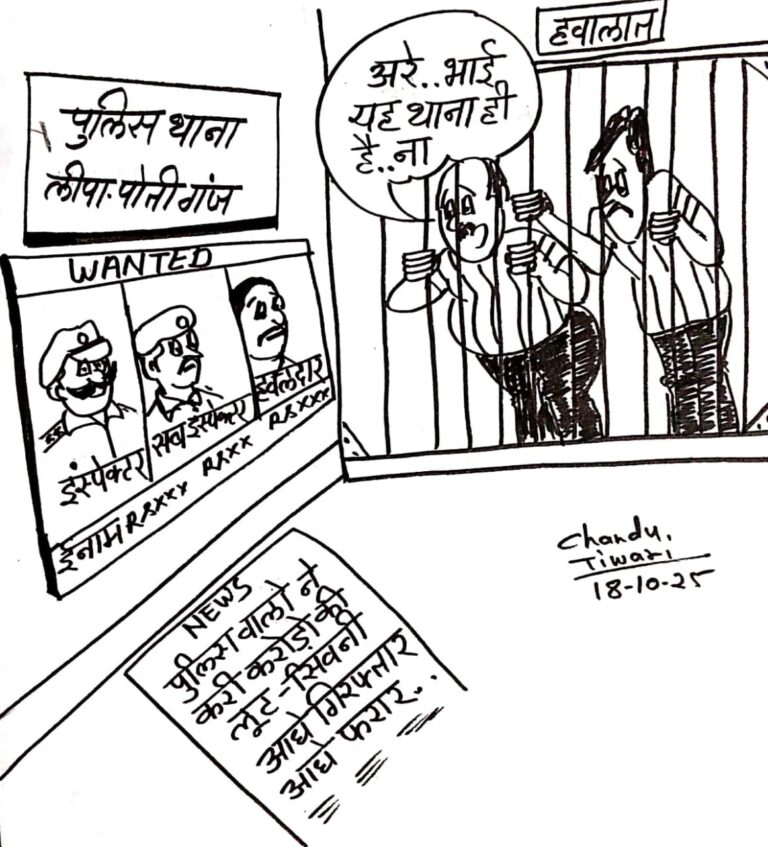 हवालात
अरे..भाई
यह थाना ही
है..ना
पुलिस थाना
लीपा-पोती गंज
WANTED
इंस्पेक्टर
सब इंस्पेक्टर
हवलदार
ईनाम RSxxx RSxx RSxxx
NEWS
पुलिस वालो ने
करी करोड़ो की
लूट-सिवनी
आधे गिरफ्तार
आधे फरार..
Chandu.
Tiwari
18-10-25